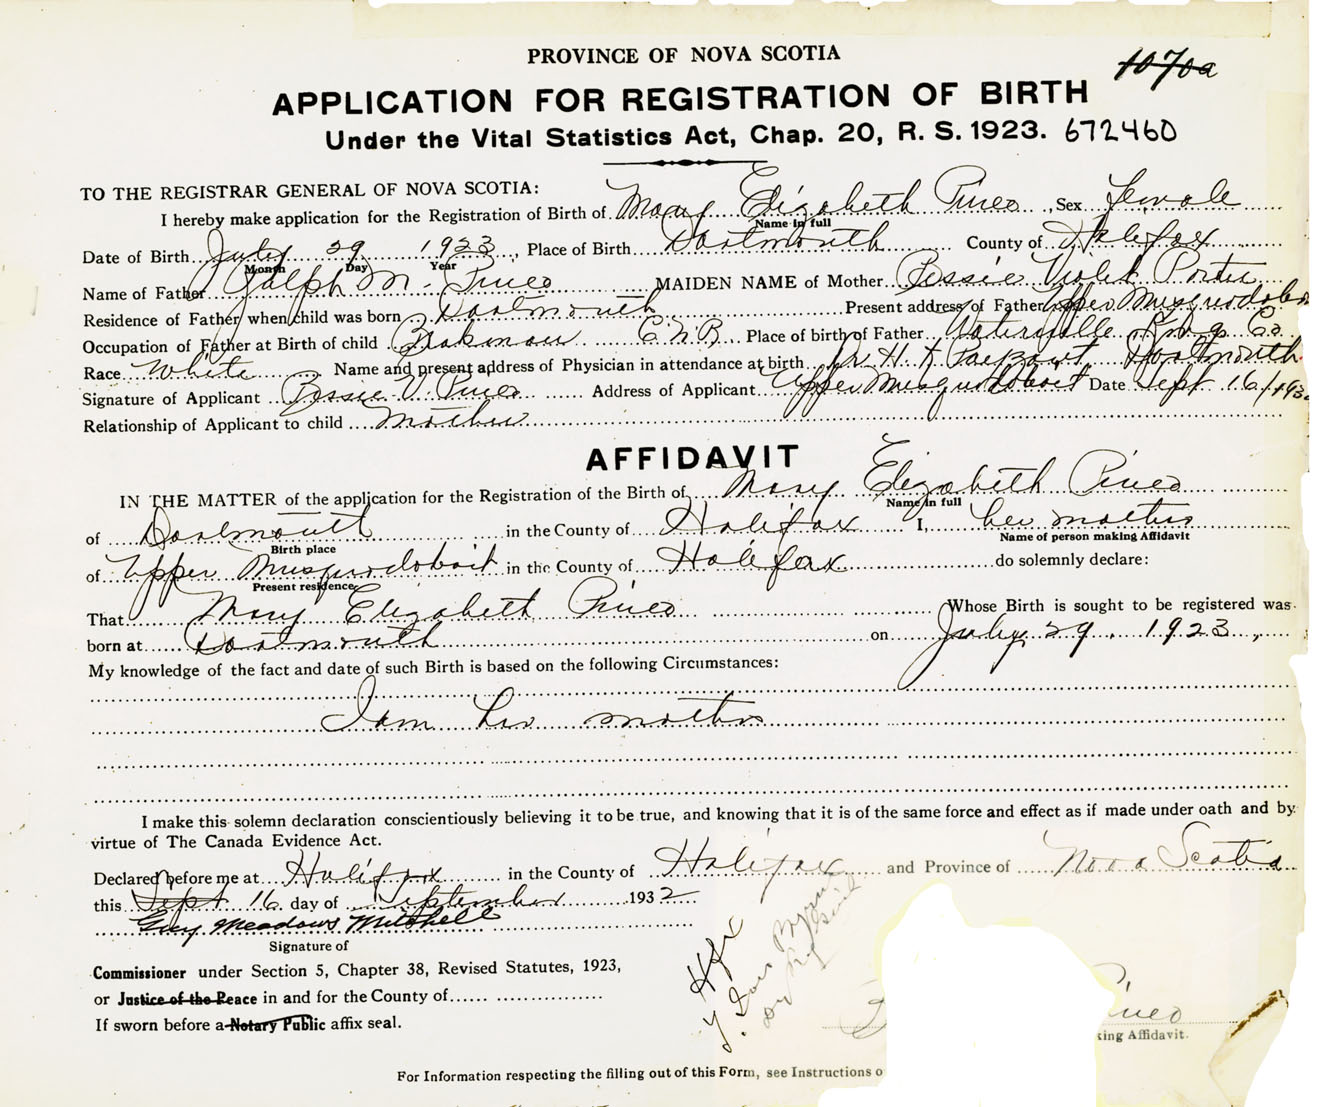 PROVINCE OF NOVA SCOTIA
1070a
APPLICATION FOR REGISTRATION OF BIRTH
Under the Vital Statistics Act, Chap. 20, R. S. 1923. 672460
TO THE REGISTRAR GENERAL OF NOVA SCOTIA:
I hereby make application for the Registration of Birth of Mary Elizabeth Pineo, Sex female
Name in full
Date of Birth July 29 1923, Place of Birth Dartmouth County of Halifax
Month Day Year
Name of Father Ralph M. Pineo MAIDEN NAME of Mother Bessie Violet Porter
Residence of Father when child was born Dartmouth Present address of Father Upper Musquodoboit
Occupation of Father at Birth of child Brakman C.N.R. Place of birth of Father Waterville Kings Co.
Race White Name and present address of Physician in attendance at birth Dr. H. Dartmouth
Signature of Applicant Bessie V. Pineo Address of Applicant Upper Musquodoboit Date Sept 16/1932
Relationship of Applicant to child Mother
AFFIDAVIT
IN THE MATTER of the application for the Registration of the Birth of Mary Elizabeth Pineo
Name in full
of Dartmouth in the County of Halifax I, her mother
Birth place Name of person making Affidavit
of Upper Musquodoboit in the County of Halifax do solemnly declare:
Present residence
That Mary Elizabeth Pineo Whose Birth is sought to be registered was
born at Dartmouth on July 29. 1923,
My knowledge of the fact and date of such Birth is based on the following Circumstances:
I am her mother
I make this solemn declaration conscientiously believing it to be true, and knowing that it is of the same force and effect as if made under oath and by
virtue of The Canada Evidence Act.
Declared before me at Halifax in the County of Halifax and Province of Nova Scotia
this Sept 16 day of September 1932
Guy Meadows Mitchell
Signature of
Commissioner under Section 5, Chapter 38, Revised Statutes, 1923,
or Justice of the Peace in and for the County of
If sworn before a Notary Public affix seal.
Hfx
Pineo
king Affidavit.
For Information respecting the filling out of this Form, see Instructions o